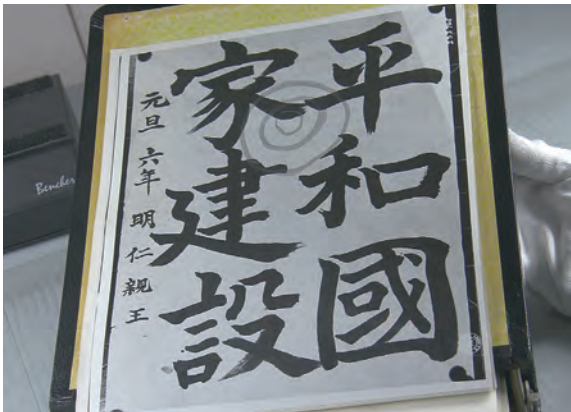 平和國
家建設
元旦 六年 明仁親王
Bencher